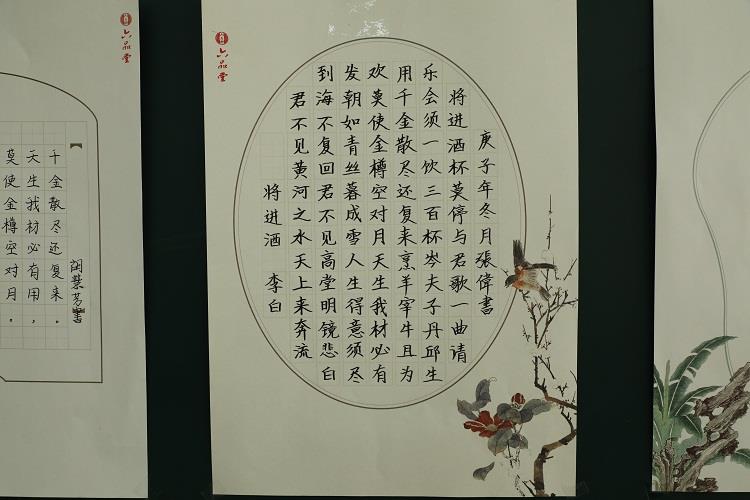 六品堂
莫使金樽空对月。
天生我材必有用,
千金散尽还复来。
六品堂
将进酒 李白
君不见黄河之水天上来奔流
到海不复回君不见高堂明镜悲白
发朝如青丝暮成雪人生得意须尽
欢莫使金樽空对月天生我材必有
用千金散尽还复来烹羊宰牛且为
乐会须一饮三百杯岑夫子丹邱生
将进酒杯莫停与君歌一曲请
庚子年冬月張偉書